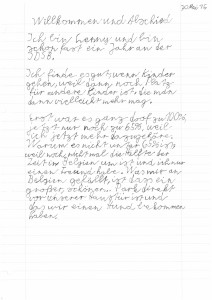 20. Mai 16
Willkommen und Abschied
Ich bin Lenny und bin
schon fast ein Jahr an der
IDSB.
Ich finde es gut wenn Kinder
gehen, weil dann noch Platz
für andere Kinder ist, die man
dann vielleicht mehr mag.
Erst war es ganz doof zu 100%
jetzt nur noch zu 65%, weil
ich jetzt mehr dazugehöre.
Warum es nicht unter 65% ist,
weil noch nicht mal die Hälfte der
Zeit in Belgien um ist und ich nur
einen Freund habe. Was mir an
Belgien gefällt, ist dass ein
großer schöner Park direkt
vor unserer Haustür ist und
das wir einen Hund bekommen
haben.